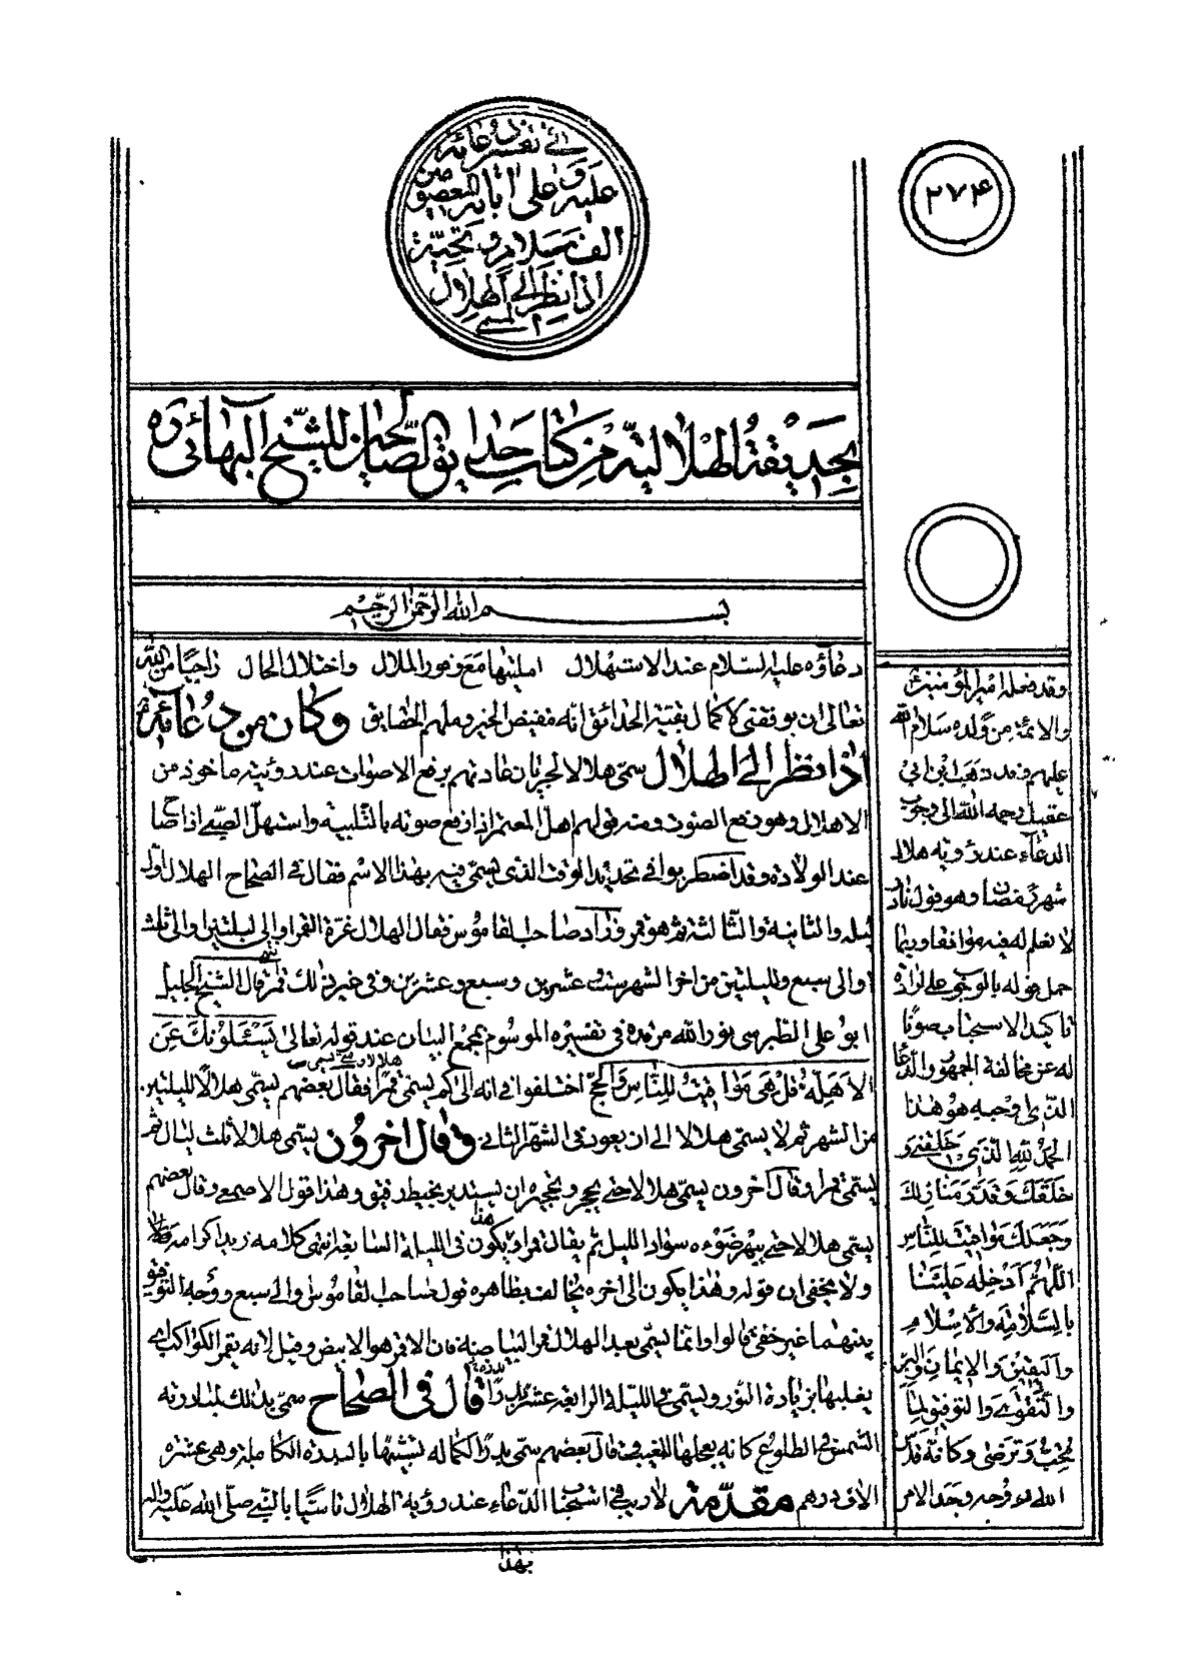 في تفسير دعائه
عليه وعلى آبائه المعصومين
الف سلام وتحية
اذا نظر الى الهلال
المسمى
٢٧۴
بحديقة الهلالية من كتاب حدايق الصالحين للشيخ البهائي ره
بسم الله الرحمن الرحيم
دعاؤه عليه السلام عند الاستهلال امليتها مع وفور الملال واختلال الحال راجيا من الله
تعالى ان يوفقني لاكمال بقية الحدائق انه مفيض الخير وملهم الحقايق وكان من دعائه
اذا نظر الى الهلال سمى هلالا لجريان عادتهم برفع الاصوات عند رؤيته ماخوذ من
الاهلال وهو رفع الصوت ومنه قولهم اهل المعتمر اذا رفع صوته بالتلبية واستهل الصبي اذا صاح
عند الولادة وقد اضطربوا في تحديد الوقت الذي يسمى فيه بهذا الاسم فقال في الصحاح الهلال اول
ليلة والثانية والثالثة ثم هو قمر وزاد صاحب القاموس فقال الهلال غرة القمر او الى ليلتين والى ثلث
والى سبع ولليلتين من اخر الشهر ست وعشرين وسبع وعشرين وفي غير ذلك قمر قال الشيخ الجليل
ابو علي الطبرسي نور الله مرقده في تفسيره الموسوم بمجمع البيان عند قوله تعالى يسئلونك عن
الاهلة قل هي مواقيت للناس والحج اختلفوا في انه الى كم يسمى هلالا ومتى يسمى قمرا فقال بعضهم يسمى هلالا لليلتين
من الشهر ثم لا يسمى هلالا الى ان يعود في الشهر الثاني وقال اخرون يسمى هلالا ثلث ليال ثم
يسمى قمرا وقال آخرون يسمى هلالا حتى يحجر وتحجيره ان يستدير بخيط دقيق وهذا قول الاصمعي وقال بعضهم
يسمى هلالا حتى يبهر ضوءه سواد الليل ثم يقال قمر وهذا يكون في الليلة السابعة انتهى كلامه زيد اكرامه
ولا يخفى ان قوله وهذا يكون الى اخره يخالف بظاهره قول صاحب القاموس والى سبع ووجه التوفيق
بينهما غير خفي قالوا وانما يسمى بعد الهلال قمرا لبياضه فان الاقمر هو الابيض وقيل لانه يقمر الكواكب اي
يغلبها بزيادة النور ويسمى في الليلة الرابعة عشر بدرا قال في الصحاح سمى بذلك لمبادرته
الشمس في الطلوع كانه يعجلها المغيب وقال بعضهم سمى بدرا لكماله تشبيها بالبدرة الكاملة وهي عشرة
الاف درهم مقدمة لا ريب في استحباب الدعاء عند رؤية الهلال تاسيا بالنبي صلى الله عليه واله
وقد فعله امير المؤمنين
والائمة من ولده سلام الله
عليهم وقد ذهب ابن ابي
عقيل رحمه الله الى وجوب
الدعاء عند رؤية هلال
شهر رمضان وهو قول نادر
لا نعلم له فيه موافقا وربما
حمل قوله بالوجوب على ارادة
تاكيد الاستحباب صونا
له عن مخالفة الجمهور والدعاء
الذي اوجبه هو هذا
الحمد لله الذي خلقني و
خلقك وقدر منازلك
وجعلك مواقيت للناس
اللهم ادخله علينا
بالسلامة والاسلام
واليقين والايمان والبر
والتقوى والتوفيق لما
تحب وترضى وكانه قدس
الله روحه وجد الامر
بهذا